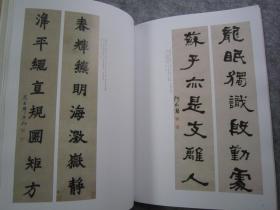 龍眠獨識殷勤處
蘇子亦是支離人
春輝鑑明海澂嶽靜
準平繩直規圓矩方